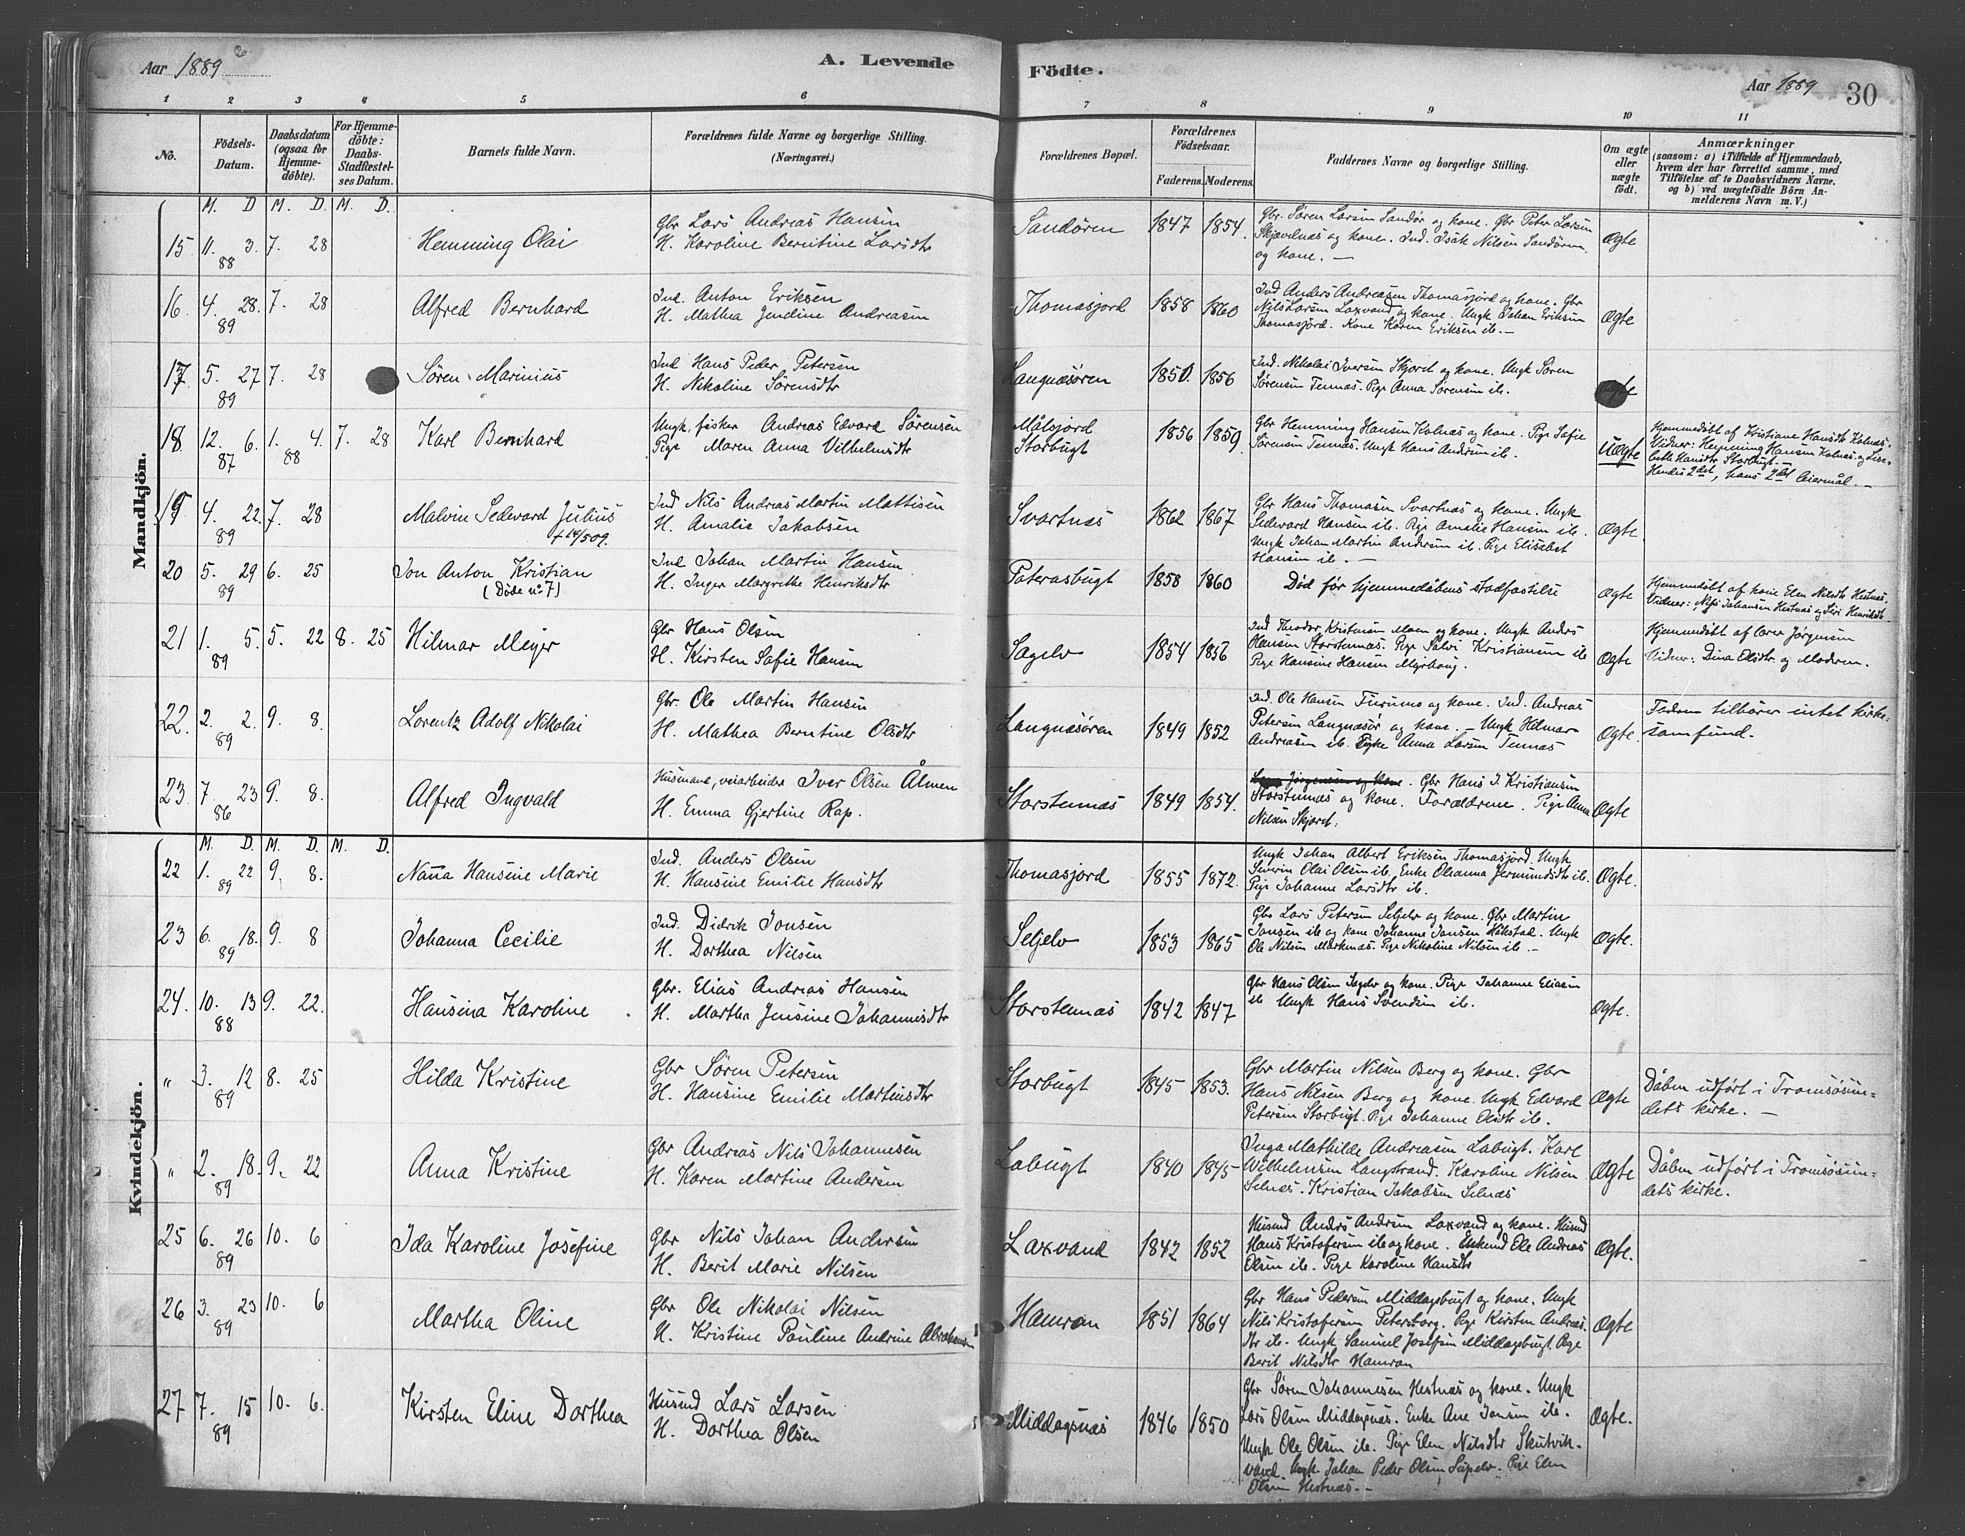 Aar 1889
A. Levende Födte.
Aar 1889
30
1 2 3 4 5 6 7 8 9 10 11
No.
Födsels-Datum.
Daabsdatum (ogsaa for Hjemme-döbte).
For Hjemme-döbte: Daabs-Stadfæstel-ses Datum.
Barnets fulde Navn.
Forældrenes fulde Navne og borgerlige Stilling.
(Næringsvei.)
Forældrenes Bopæl.
Forældrenes Födselsaar.
Faderens. Moderens.
Faddernes Navne og borgerlige Stilling.
Om ægte eller uægte födt.
Anmærkninger
(saasom: a) i Tilfælde af Hjemmedaab,
hvem der har forrettet samme, med
Tilföielse af to Daabsvidners Navne,
og b) ved uægtefödte Börn An-
melderens Navn m. V.)
Mandkjön.
M. D. M. D. M. D.
15 11. 3. 88 7. 28 Hemming Olai
Gbr Lars Andreas Hansen
H. Karoline Berntine Larsdtr
Sandøren 1847 1854.
Gbr. Søren Larsen Sandør og kone. Gbr Peter Larsen
Skjævelnæs og kone. Ind. Isak Nilsen Sandøren
og kone. —
Ægte
16. 4. 28. 89 7. 28 Alfred Bernhard
Ind. Anton Eriksen
H. Mathea Jendine Andreasen
Thomasjord 1858 1860
Ind Anders Andreasen Thomasjord og kone. Gbr
Nils Larsen Laxvand og kone. Ungk Johan Eriksen
Thomasjord. Kone Karen Eriksen ib. —
Ægte
17. 5. 27 89 7. 28 Søren Marinius
Ind Hans Peder Petersen
H. Nikoline Sørensdtr
Langnæsøren 1850. 1856
Ind. Nikolai Iversen Skjoret og kone. Ungk Søren
Sørensen Tennæs. Pige Anna Sørensen ib.
18 12. 6. 87 1. 4. 88 7. 28 Karl Bernhard
Ungk. fisker Andreas Edvard Sørensen
Pige Maren Anna Vilhelmsdtr
Målsjord
Storbugt 1856 1859.
Gbr Hemming Hansen Kolnæs og kone. Pige Sofie
Sørensen Tennæs. Ungk Hans Andersen ib.
Uægte
Hjemmedöbt af Kristiane Hansdtr Kolnæs.
Vidner: Hemming Hansen Kolnæs og Lise-
beth Hansdtr Storbugt. —
Hendes 2det, hans 2det Leiermål. —
19 4. 22. 89 7. 28 Malvin Sedevard Julius
+ 14/5 09.
Ind Nils Andreas Martin Mattisen
H. Amalie Jakobsen
Svartnæs 1862 1867
Gbr Hans Thomasen Svartnæs og kone. Ungk
Sedevard Hansen ib. Pige Amalie Hansen ib.
Ungk Johan Martin Andersen ib. Pige Elisabet
Hansen ib. —
Ægte.
20 5. 29 89 6. 25 Jon Anton Kristian
(Døde no 7)
Ind Johan Martin Hansen
H. Inger Margrethe Henriksdtr
Paterasbugt 1858 1860
Död før hjemmedåbens stadfæstelse
Ægte
Hjemmedöbt af kone Elen Nilsdtr Hestnæs.
Vidner: Nils Johansen Hestnæs og Siri Henriksdtr.
21 1. 5. 89 5. 22 8. 25 Hilmar Meyer
Gbr Hans Olsen
H. Kirsten Sofie Hansen
Sagelv 1854 1856
Ind Theodor Kristensen Moen og kone. Ungk Anders
Hansen Storstennæs. Pige Salvi Kristiansen ib
Pige Hansine Hansen Myrhaug.
Ægte
Hjemmedöbt af Jørgensen
Vidner: Dina Olsdtr og Moderen.
22. 2. 2. 89 9. 8. Lorentz Adolf Nikolai
Gbr. Ole Martin Hansen
H. Mathea Berntine Olsdtr
Langnæsøren 1849 1852
Ind. Ole Hansen Furumo og kone. Ind. Andreas
Petersen Langnæsør og kone. — Ungk Hilmar
Andreasen ib. Pige Anna Larsen Tennæs
Ægte.
Faderen tilhører intet kirke-
samfund.
23. 7 23 86 9. 8. Alfred Ingvald
Husmand, veiarbeider Iver Olsen Ålmen
H. Emma Gjertine Rap.
Storstennæs 1849 1854.
Jørgensen og kone. Gbr Hans J. Kristiansen
Storstennæs og kone. Forældrene. Pige Anna
Nilsen Skjoret.
Ægte
Kvindekjön.
M. D. M. D. M. D.
22 1. 22 89 9. 8. Nanna Hansine Marie
Ind. Anders Olsen
H. Hansine Emilie Hansdtr
Thomasjord 1855 1872.
Ungk Johan Albert Eriksen Thomasjord. Ungk
Severin Olai Olsen ib. Enke Oleanna Jermundsdtr ib.
Pige Johanne Larsdtr ib.
Ægte.
23 6. 18. 89 9. 8 Johanna Cecilie
Ind. Didrik Jonsen
H. Dorthea Nilsen
Seljelv 1853 1865
Gbr Lars Petersen Seljelv og kone. Gbr Martin
Jonsen ib og kone Johanne Jonsen Håkstad. Ungk
Ole Nilsen Markenæs. Pige Nikoline Nilsen ib. —
Ægte.
24. 10. 13 88 9. 22. Hansina Karoline
Gbr. Elias Andreas Hansen
H. Martha Jensine Johannesdtr
Storstennæs 1842 1847
Gbr Hans Olsen Sagelv og kone. Pige Johanne Eliasen
ib Ungk Hans Svendsen ib.
Ægte.
" 3. 12 89 8. 25 Hilda Kristine
Gbr Søren Petersen
H. Hansine Emilie Martinsdtr
Storbugt 1845 1853.
Gbr Martin Nilsen Berg og kone. Gbr
Hans Nilsen Berg og kone. Ungk Edvard
Petersen Storbugt. Pige Johanne Olsdtr ib.
Ægte
Dåben udført i Tromsösun-
dets kirke. —
" 2. 18. 89 9. 22 Anna Kristine
Gbr Andreas Nils Johannesen
H. Karen Martine Andersen
Labugt 1840 1845
Inga Mathilde Andreasen Labugt. Karl
Wilhelmsen Langstrand. Karoline Nilsen
Selnæs. Kristian Jakobsen Selnæs
Ægte
Dåben udført i Tromsösun-
dets kirke.
25 6. 26 89 10. 6 Ida Karoline Josefine
Gbr Nils Johan Andersen
H. Berit Marie Nilsen
Laxvand 1842 1852
Husmd Anders Andersen Laxvand og kone. Husmd
Hans Kristofersen ib og kone. Enkemd Ole Andreas
Olsen ib. Pige Karoline Hansdtr
Ægte.
26 3. 23 89 10. 6 Martha Oline
Gbr Ole Nikolai Nilsen
H. Kristine Pauline Andrine Abrahamsen
Hamran 1851 1864
Gbr Hans Pedersen Middagsbugt og kone. Ungk
Nils Kristofersen Peterstorg. Pige Kirsten Andreas-
dtr ib. Ungk Samuel Josefsen Middagsbugt. Pige
Berit Nilsdtr Hamran
Ægte
27 7. 15 89 10. 6. Kirsten Eline Dorthea
Husmd Lars Larsen
H. Dorthea Olsen
Middagsnæs 1846 1850
Gbr Søren Johannesen Hestnæs og kone. Ungk
Lars Olsen Middagsnæs. Enke Ane Jonsen ib.
Ungk Ole Olsen ib. Pige Elen Nilsdtr Skutvik-
vand. Ungk. Johan Peder Olsen Sagelv. Pige Elen
Olsen Hestnæs. —
Ægte.